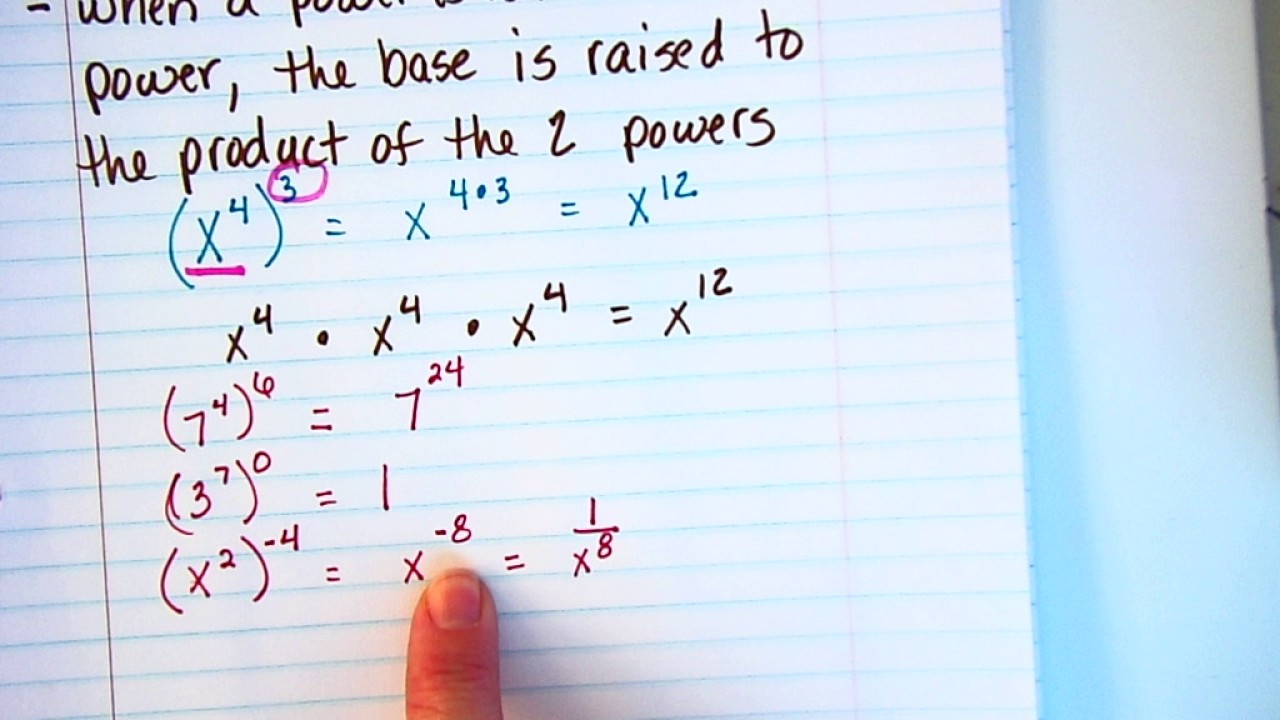 - when a power
power, the base is raised to
the product of the 2 powers
(x⁴)³ = x⁴•³ = x¹²
x⁴ • x⁴ • x⁴ = x¹²
(7⁴)⁶ = 7²⁴
(3⁷)⁰ = 1
(x²)⁻⁴ = x⁻⁸ = 1/x⁸